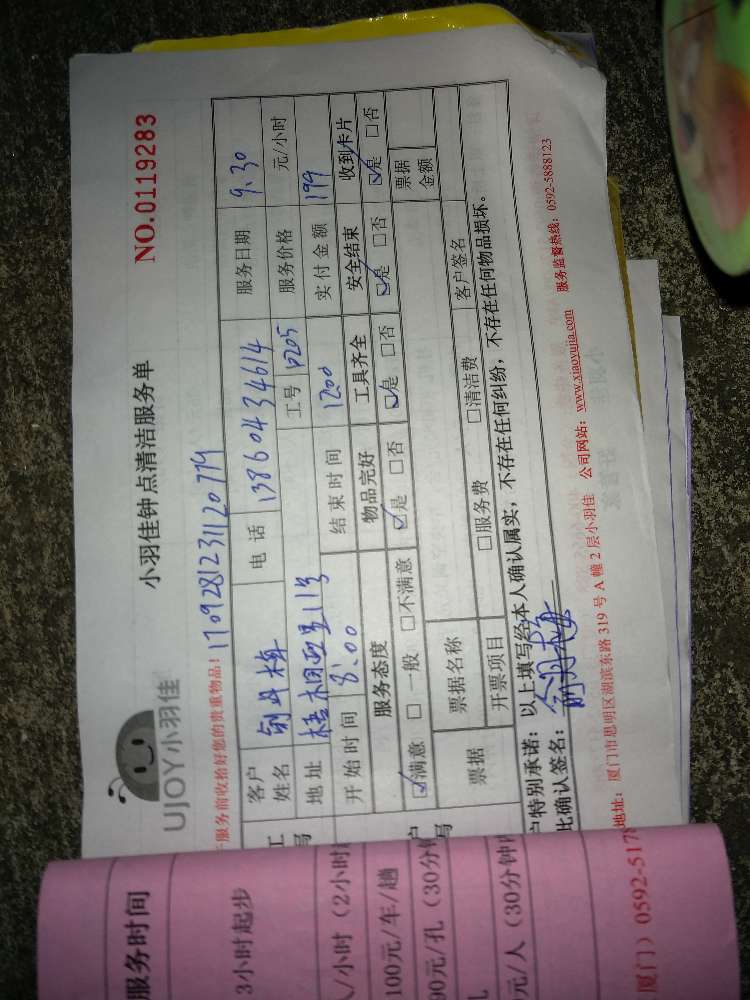 小羽佳钟点清洁服务单
NO.0119283
UJOY小羽佳
服务前收拾好您的贵重物品! 170928123112077
客户姓名 电话 13860434614 服务日期 9.30
地址 工号 P205 服务价格 元/小时
开始时间 8:00 结束时间 1200 实付金额 199
服务态度 物品完好 工具齐全 安全结束 收到卡片
☑满意 □一般 □不满意 ☑是 □否 ☑是 □否 ☑是 □否 ☑是 □否
票据 票据名称 票据金额
开票项目 □服务费 □清洁费 客户签名
户特别承诺: 以上填写经本人确认属实，不存在任何纠纷，不存在任何物品损坏。
此确认签名:
地址: 厦门市思明区湖滨东路 319 号 A 幢 2 层小羽佳 公司网站: www.xiaoyujia.com 服务监督热线: 0592-5888123
服务时间
3小时起步
/小时（2小时
100元/车/趟
00元/孔（30分
元/人（30分钟
厦门）0592-517